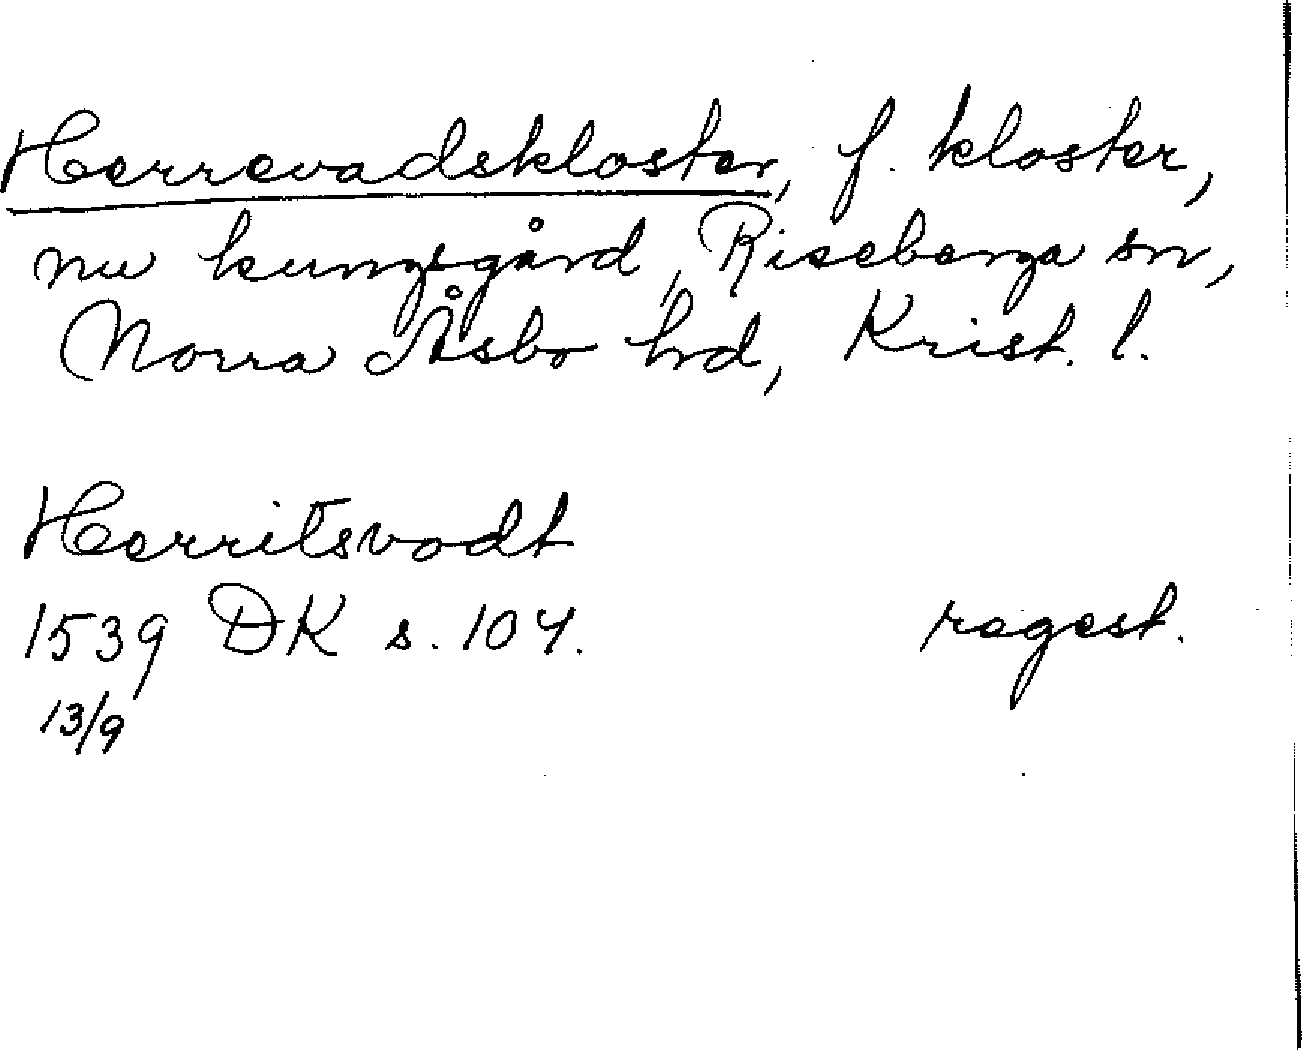 Herrevadskloster, f. kloster,
nu kungsgård, Riseberga sn,
Norra Åsbo hd, Krist. l.
Herritsvadt
1539 DK s. 104. regest.
13/9